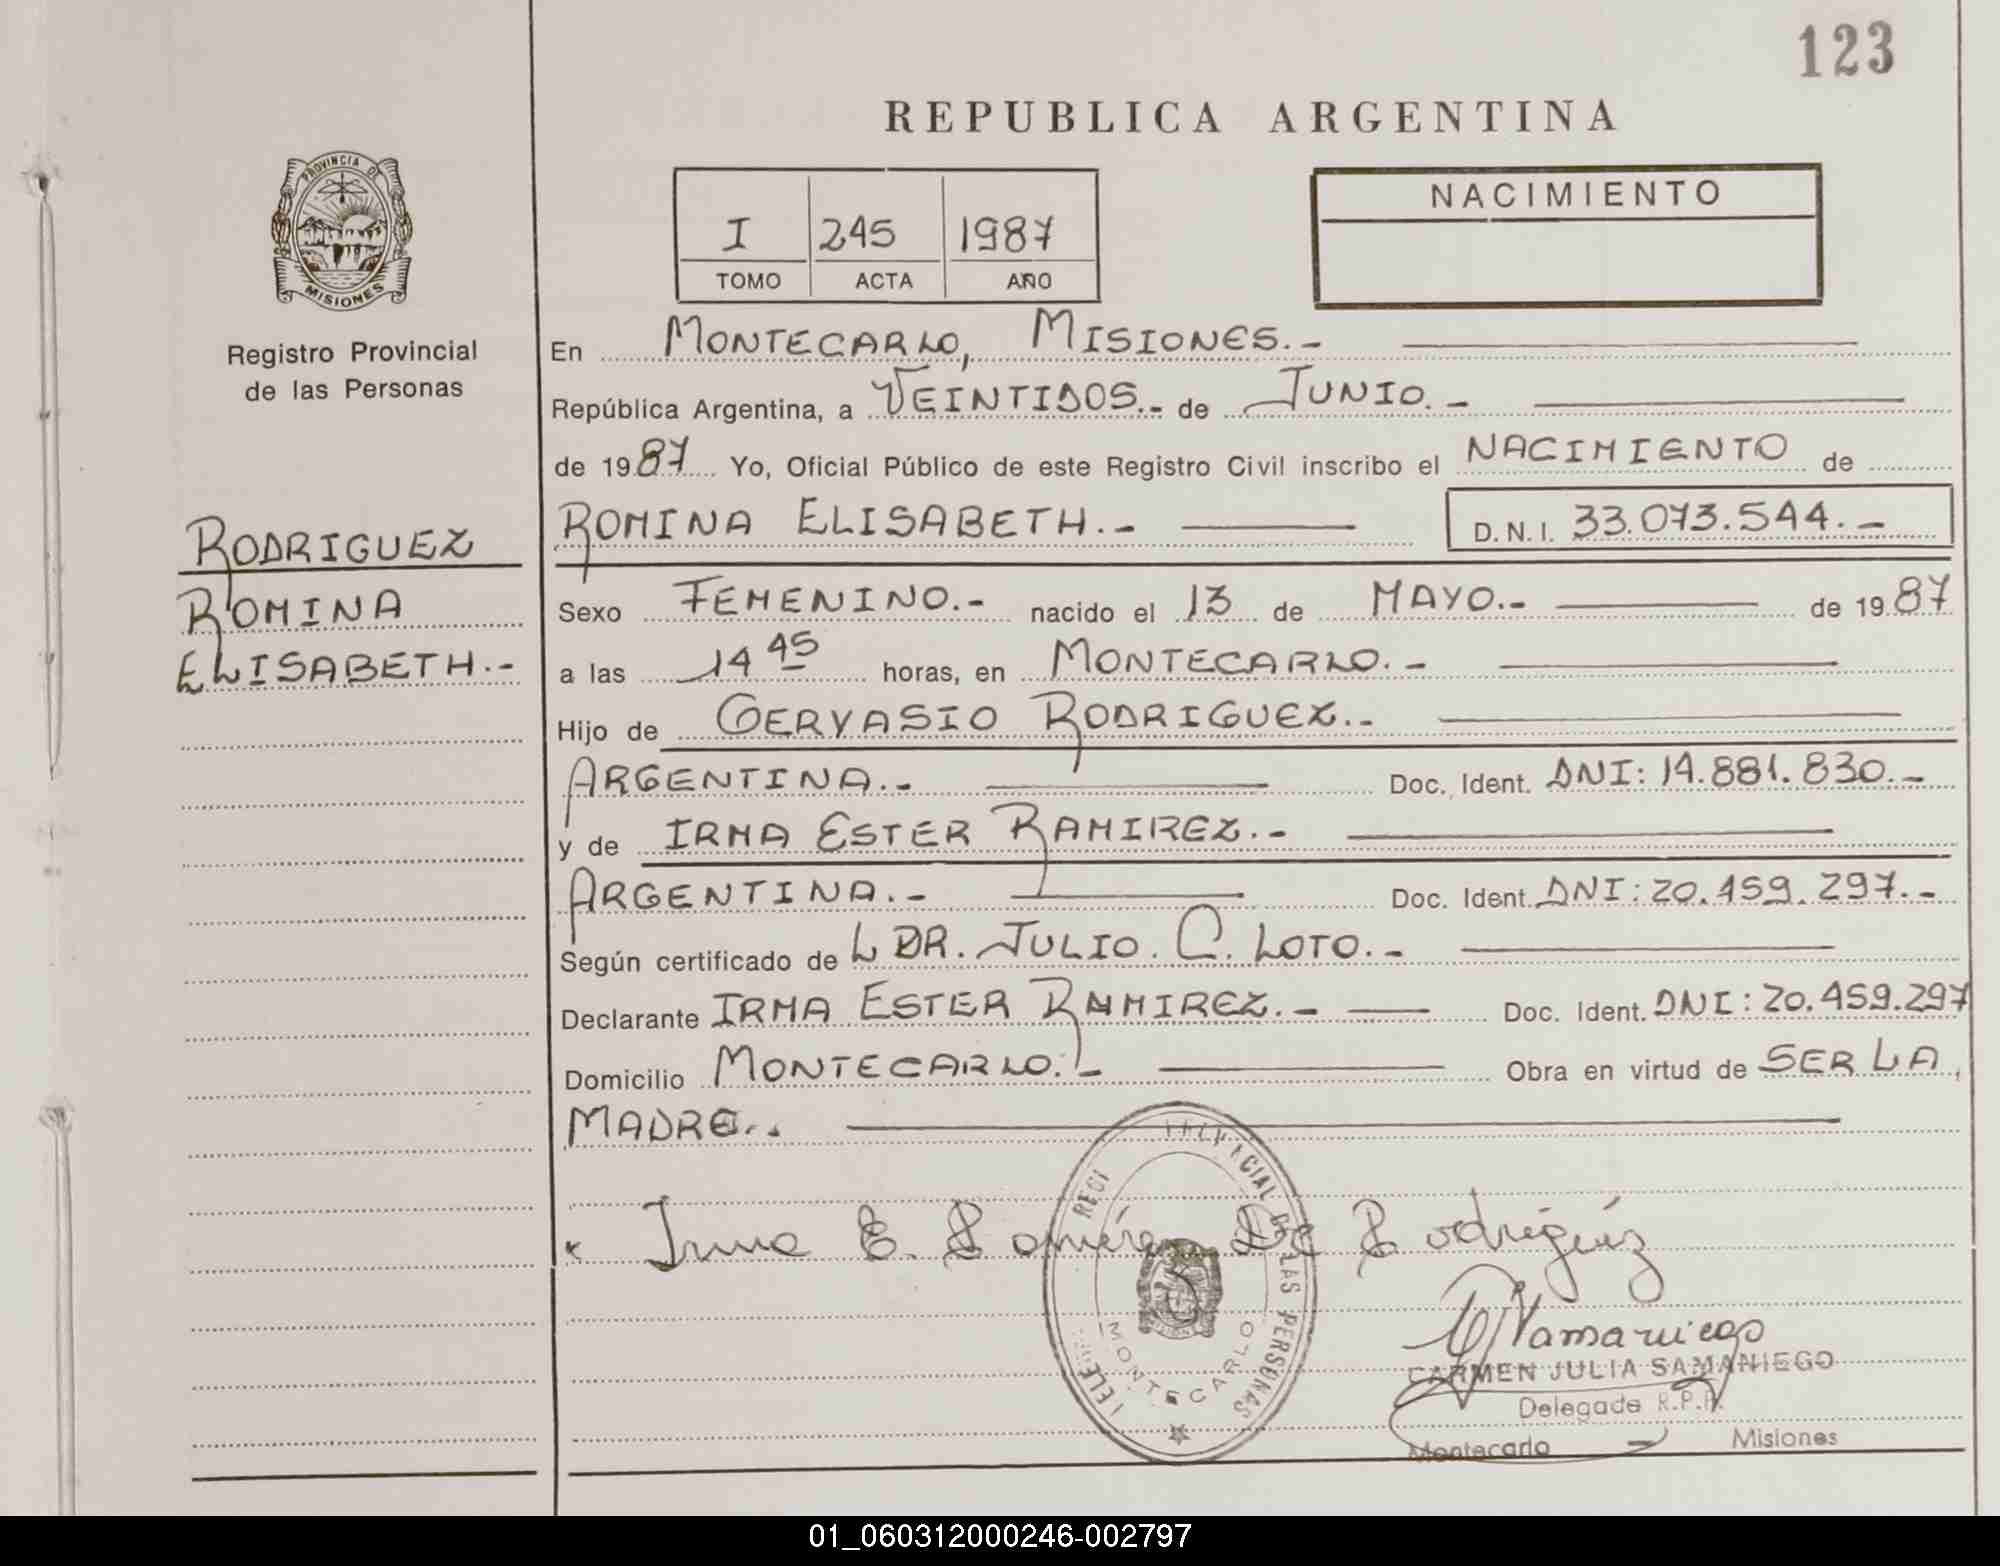 123
REPUBLICA ARGENTINA
PROVINCIA DE
MISIONES
Registro Provincial
de las Personas
I 245 1987
TOMO ACTA AÑO
NACIMIENTO
En MONTECARLO, MISIONES.-
República Argentina, a VEINTIDOS.- de JUNIO.-
de 1987 Yo, Oficial Público de este Registro Civil inscribo el NACIMIENTO de
RODRIGUEZ
ROMINA
ELISABETH.-
ROMINA ELISABETH.- D.N.I. 33.073.544.-
Sexo FEMENINO.- nacido el 13 de MAYO.- de 1987
a las 14 45 horas, en MONTECARLO.-
Hijo de GERVASIO RODRIGUEZ.-
ARGENTINA.- Doc. Ident. DNI: 14.881.830.-
y de IRMA ESTER RAMIREZ.-
ARGENTINA.- Doc. Ident. DNI: 20.459.297.-
Según certificado de L DR. JULIO. C. LOTO.-
Declarante IRMA ESTER RAMIREZ.- Doc. Ident. DNI: 20.459.297
Domicilio MONTECARLO.- Obra en virtud de SER LA
MADRE..
Irma E. Ramírez De Rodríguez
PROVINCIAL DE LAS PERSONAS
MONTECARLO
CARMEN JULIA SAMANIEGO
Delegada R.P.P.
Montecarlo - Misiones
01_060312000246-002797